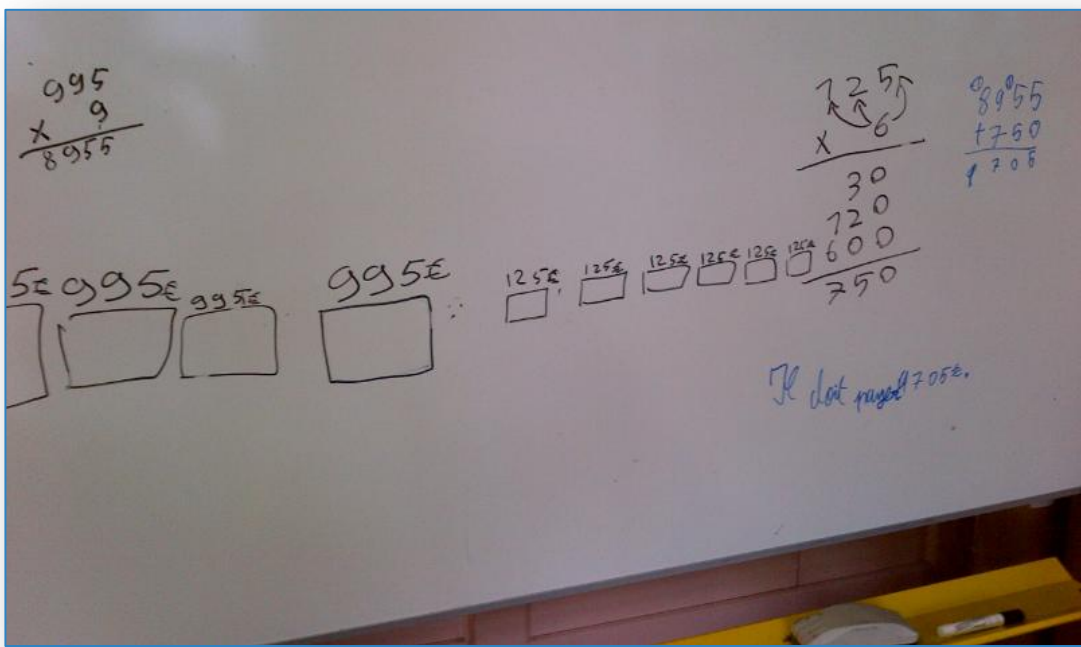 995
x 9
8955
125
x 6
30
120
600
750
8955
+750
9705
5€ 995€ 995€ 995€ 125€ 125€ 125€ 125€ 125€ 125€
Il doit payer 9705€.